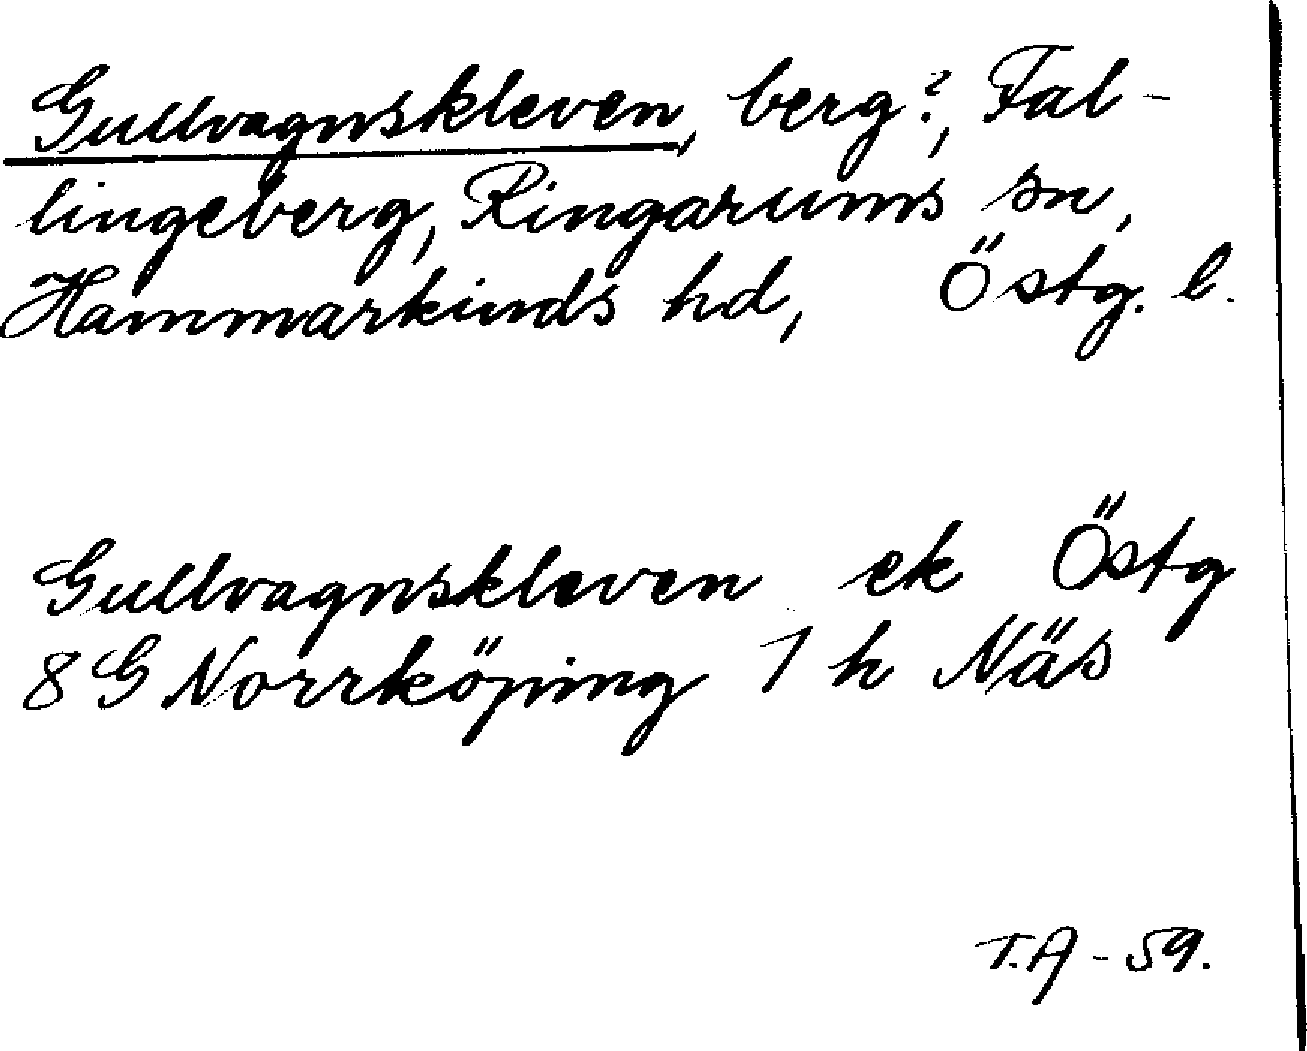 Gullvagnskleven, berg?, Fal-
lingeberg, Ringarums sn,
Hammarkinds hd, Östg. l.
Gullvagnskleven ek Östg
8 G Norrköping 1 h Näs
T.A - 59.